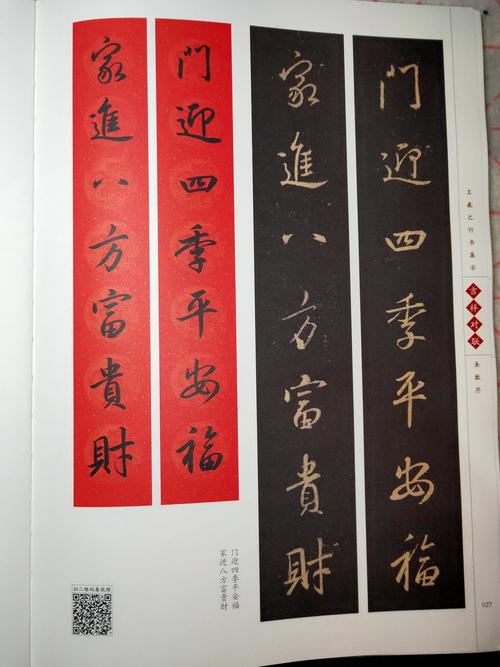 門迎四季平安福
家進八方富貴財
門迎四季平安福
家進八方富貴財
王羲之行书集字
吉祥对联
圣教序
门迎四季平安福
家进八方富贵财
扫二维码看视频
027